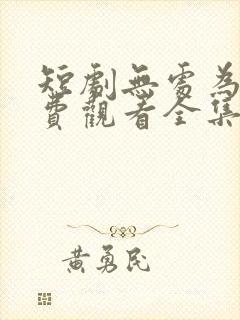 短劇無處為
費觀看全集
黃勇民